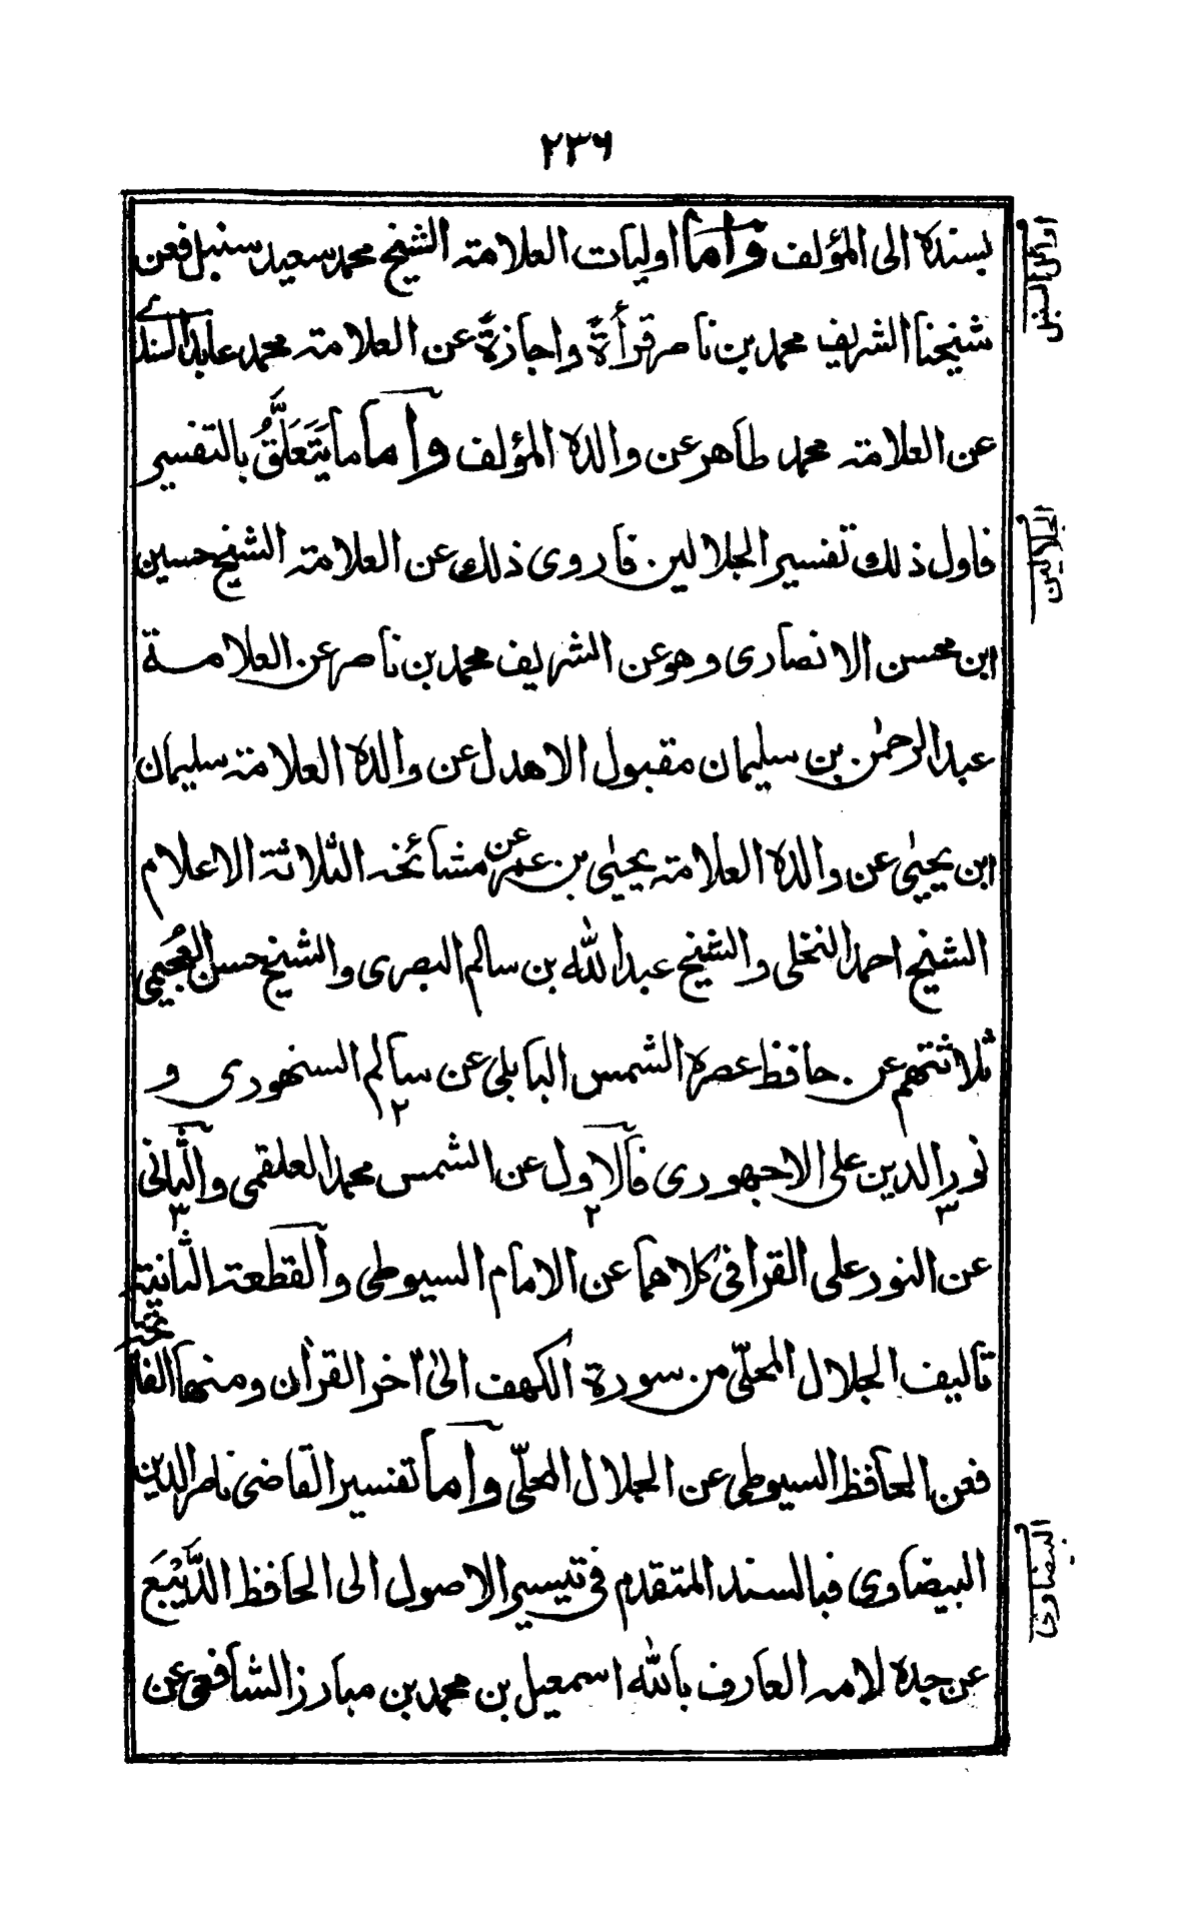 ٢٣٦
بسنده الى المؤلف وأما اوليات العلامته الشيخ محمد سعيد سنبل فعن
شيخنا الشريف محمد بن ناصر قرأة واجازة عن العلامته محمد عابد السندے
عن العلامته محمد طاهر عن والده المؤلف وأما ما يَتَعَلَّقُ بالتفسير
فاول ذلك تفسير الجلالين فاروى ذلك عن العلامته الشيخ حسين
ابن محسن الانصارى وهو عن الشريف محمد بن ناصر عن العلامة
عبد الرحمٰن بن سليمان مقبول الاهدل عن والده العلامته سليمان
ابن يحيىٰ عن والده العلامته يحيىٰ بن عمر عن مشائخه الثلاثة الاعلام
الشيخ احمد النخلى والشيخ عبد الله بن سالم البصرى والشيخ حسن العُجيمى
ثلاثتهم عن حافظ عصره الشمس البابلى عن سالم السنهورى و
٢
نور الدين على الاجهورى فالاول عن الشمس محمد العلقمى والثانى
٣ ٢ ٣
عن النور على القرافى كلاهما عن الامام السيوطى والقطعة الثانية
تاليف الجلال المحلّى من سورة الكهف الىٰ اٰخر القراٰن ومنها الفاتحة
فعن الحافظ السيوطى عن الجلال المحلّى وأما تفسير القاضى ناصر الدين
البيضاوى فبالسند المتقدم فى تيسير الاصول الى الحافظ الدَّيْبَع
عن جده لامه العارف بالله اسمعيل بن محمد بن مبارز الشافعى عن
اوائل السنبل
الجلالين
البيضاوى